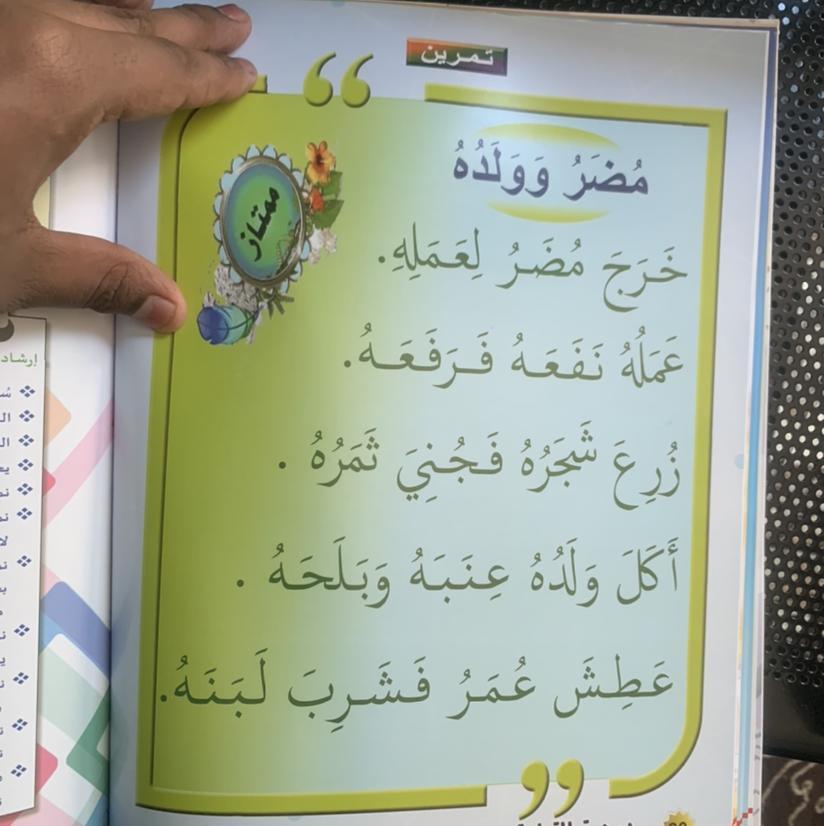 تمرين
مُضَرُ وَوَلَدُهُ
ممتاز
خَرَجَ مُضَرُ لِعَمَلِهِ.
عَمَلُهُ نَفَعَهُ فَرَفَعَهُ.
زُرِعَ شَجَرُهُ فَجُنِيَ ثَمَرُهُ .
أَكَلَ وَلَدُهُ عِنَبَهُ وَبَلَحَهُ .
عَطِشَ عُمَرُ فَشَرِبَ لَبَنَهُ.